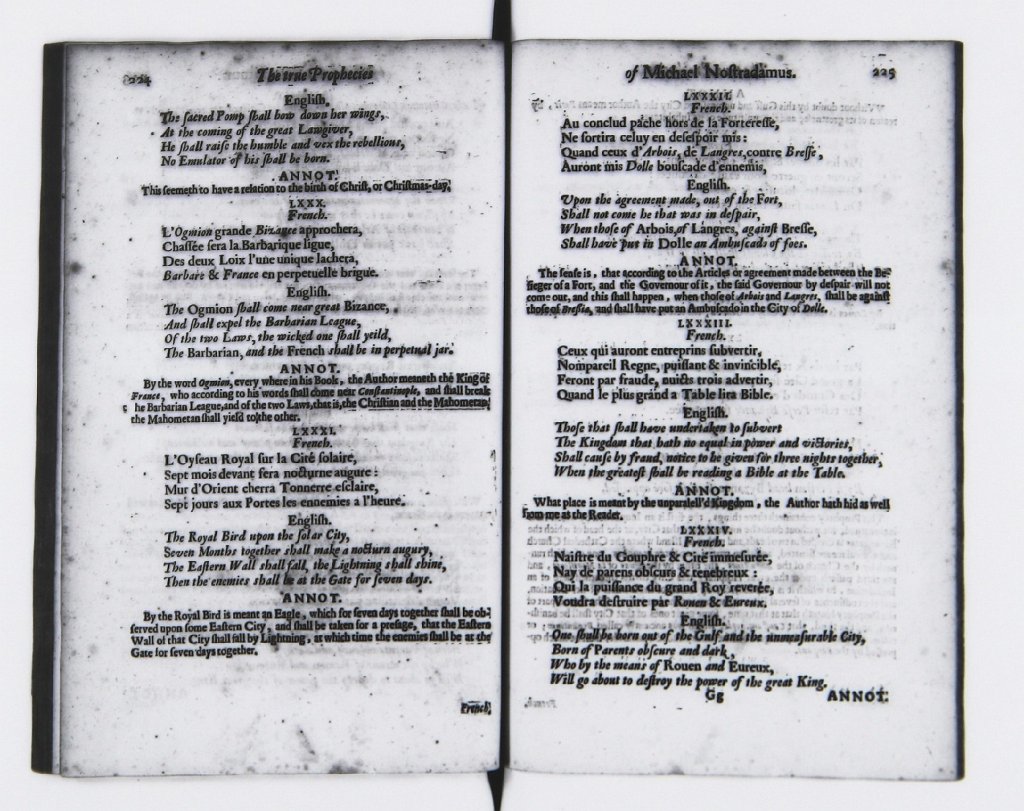 224 The true Prophecies
Engliſh.
The ſacred Pomp ſhall bow down her wings,
At the coming of the great Lawgiver,
He ſhall raiſe the humble and vex the rebellious,
No Emulator of his ſhall be born.
ANNOT.
This ſeemeth to have a relation to the birth of Chriſt, or Chriſtmas-day.
LXXX.
French.
L'Ogmion grande Bizance approchera,
Chaſſée ſera la Barbarique ligue,
Des deux Loix l'une unique lachera,
Barbare & France en perpetuelle brigue.
Engliſh.
The Ogmion ſhall come near great Bizance,
And ſhall expel the Barbarian League,
Of the two Laws, the wicked one ſhall yeild,
The Barbarian, and the French ſhall be in perpetual jar.
ANNOT.
By the word Ogmion, every where in his Book, the Author meaneth the King of
France, who according to his words ſhall come near Conſtantinople, and ſhall break
he Barbarian League, and of the two Laws, that is, the Chriſtian and the Mahometan,
the Mahometan ſhall yield to the other.
LXXXI.
French.
L'Oyſeau Royal ſur la Cité ſolaire,
Sept mois devant fera nocturne augure :
Mur d'Orient cherra Tonnerre eſclaire,
Sept jours aux Portes les ennemies a l'heure.
Engliſh.
The Royal Bird upon the ſolar City,
Seven Months together shall make a nocturn augury,
The Eaſtern Wall ſhall fall, the Lightning ſhall ſhine,
Then the enemies ſhall be at the Gate for ſeven days.
ANNOT.
By the Royal Bird is meant an Eagle, which for ſeven days together ſhall be ob-
ſerved upon ſome Eaſtern City, and ſhall be taken for a preſage, that the Eaſtern
Wall of that City ſhall fall by Lightning, at which time the enemies ſhall be at the
Gate for ſeven days together.
French.
of Michael Noſtradamus. 225
LXXXII.
French.
Au conclud pache hors de la Fortereſſe,
Ne ſortira celuy en deſeſpoir mis :
Quand ceux d'Arbois, de Langres, contre Breſſe,
Auront mis Dolle bouſcade d'ennemis,
Engliſh.
Upon the agreement made, out of the Fort,
Shall not come he that was in deſpair,
When thoſe of Arbois, of Langres, againſt Breſſe,
Shall have put in Dolle an Ambuſcado of foes.
ANNOT.
The ſenſe is, that according to the Articles or agreement made between the Be-
ſieger of a Fort, and the Governour of it, the ſaid Governour by deſpair will not
come out, and this ſhall happen, when thoſe of Arbois and Langres, ſhall be againſt
thoſe of Breſſia, and ſhall have put an Ambuſcado in the City of Dolle.
LXXXIII.
French.
Ceux qui auront entreprins ſubvertir,
Nompareil Regne, puiſſant & invincible,
Feront par fraude, nuicts trois advertir,
Quand le plus grand a Table lira Bible.
Engliſh.
Thoſe that ſhall have undertaken to ſubvert
The Kingdom that hath no equal in power and victories,
Shall cauſe by fraud, notice to be given for three nights together,
When the greateſt ſhall be reading a Bible at the Table.
ANNOT.
What place is meant by the unparalell'd Kingdom, the Author hath hid as well
from me as the Reader.
LXXXIV.
French.
Naiſtre du Gouphre & Cité immeſurée,
Nay de parens obſcurs & tenebreux :
Qui la puiſſance du grand Roy reverée,
Voudra deſtruire par Rouen & Eureux.
Engliſh.
One ſhall be born out of the Gulf and the unmeaſurable City,
Born of Parents obſcure and dark,
Who by the means of Rouen and Eureux,
Will go about to deſtroy the power of the great King.
Gg ANNOT.